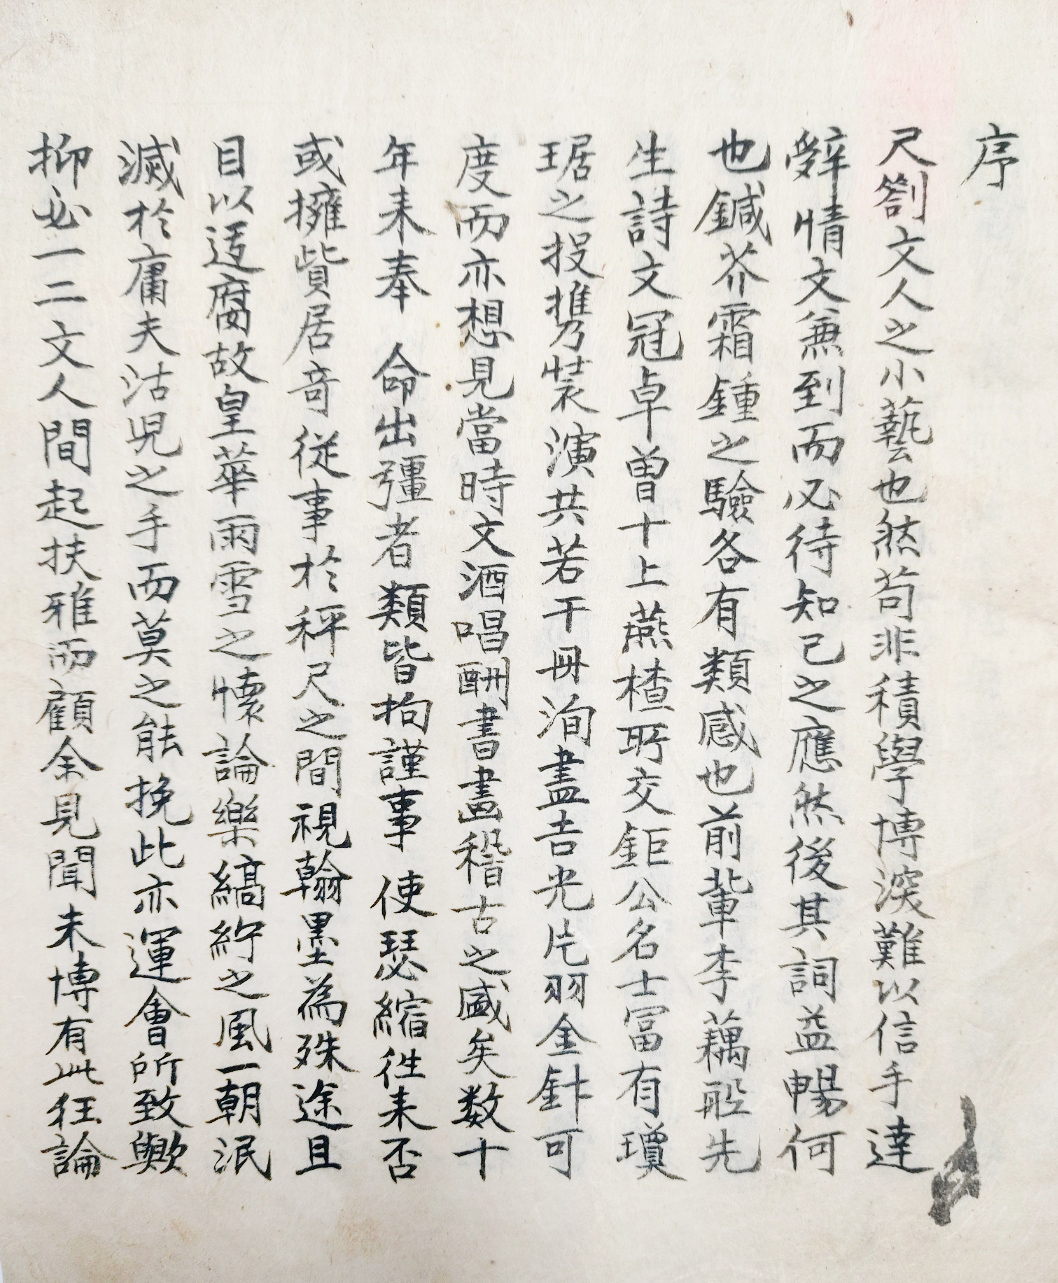 序
尺劄文人之小藝也然苟非積學博深難以信手達
辭情文兼到而必待知己之應然後其詞益暢何
也鍼芥霜鍾之驗各有類感也前輩李藕船先
生詩文冠卓曽十上燕楂所交鉅公名士冨有瓊
琚之投携裝演共若干冊洵盡吉光片羽金針可
度而亦想見當時文酒唱酬書畫稽古之盛矣数十
年来奉 命出彊者類皆拘謹事 使瑟縮徃来否
或擁貲居奇従事於秤尺之間視翰墨為殊途且
目以迂腐故皇華雨雪之懷論樂縞紵之風一朝泯
滅於庸夫沽児之手而莫之能挽此亦運會所致歟
抑必一二文人間起扶雅而顧余見聞未博有此狂論